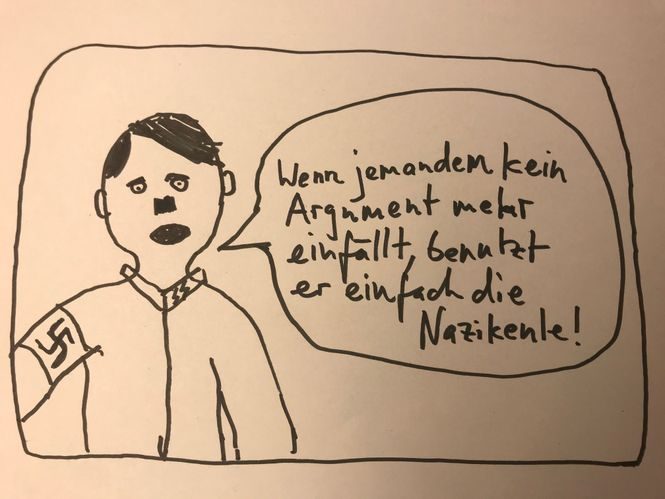 Wenn jemandem kein
Argument mehr
einfällt, benutzt
er einfach die
Nazikeule!